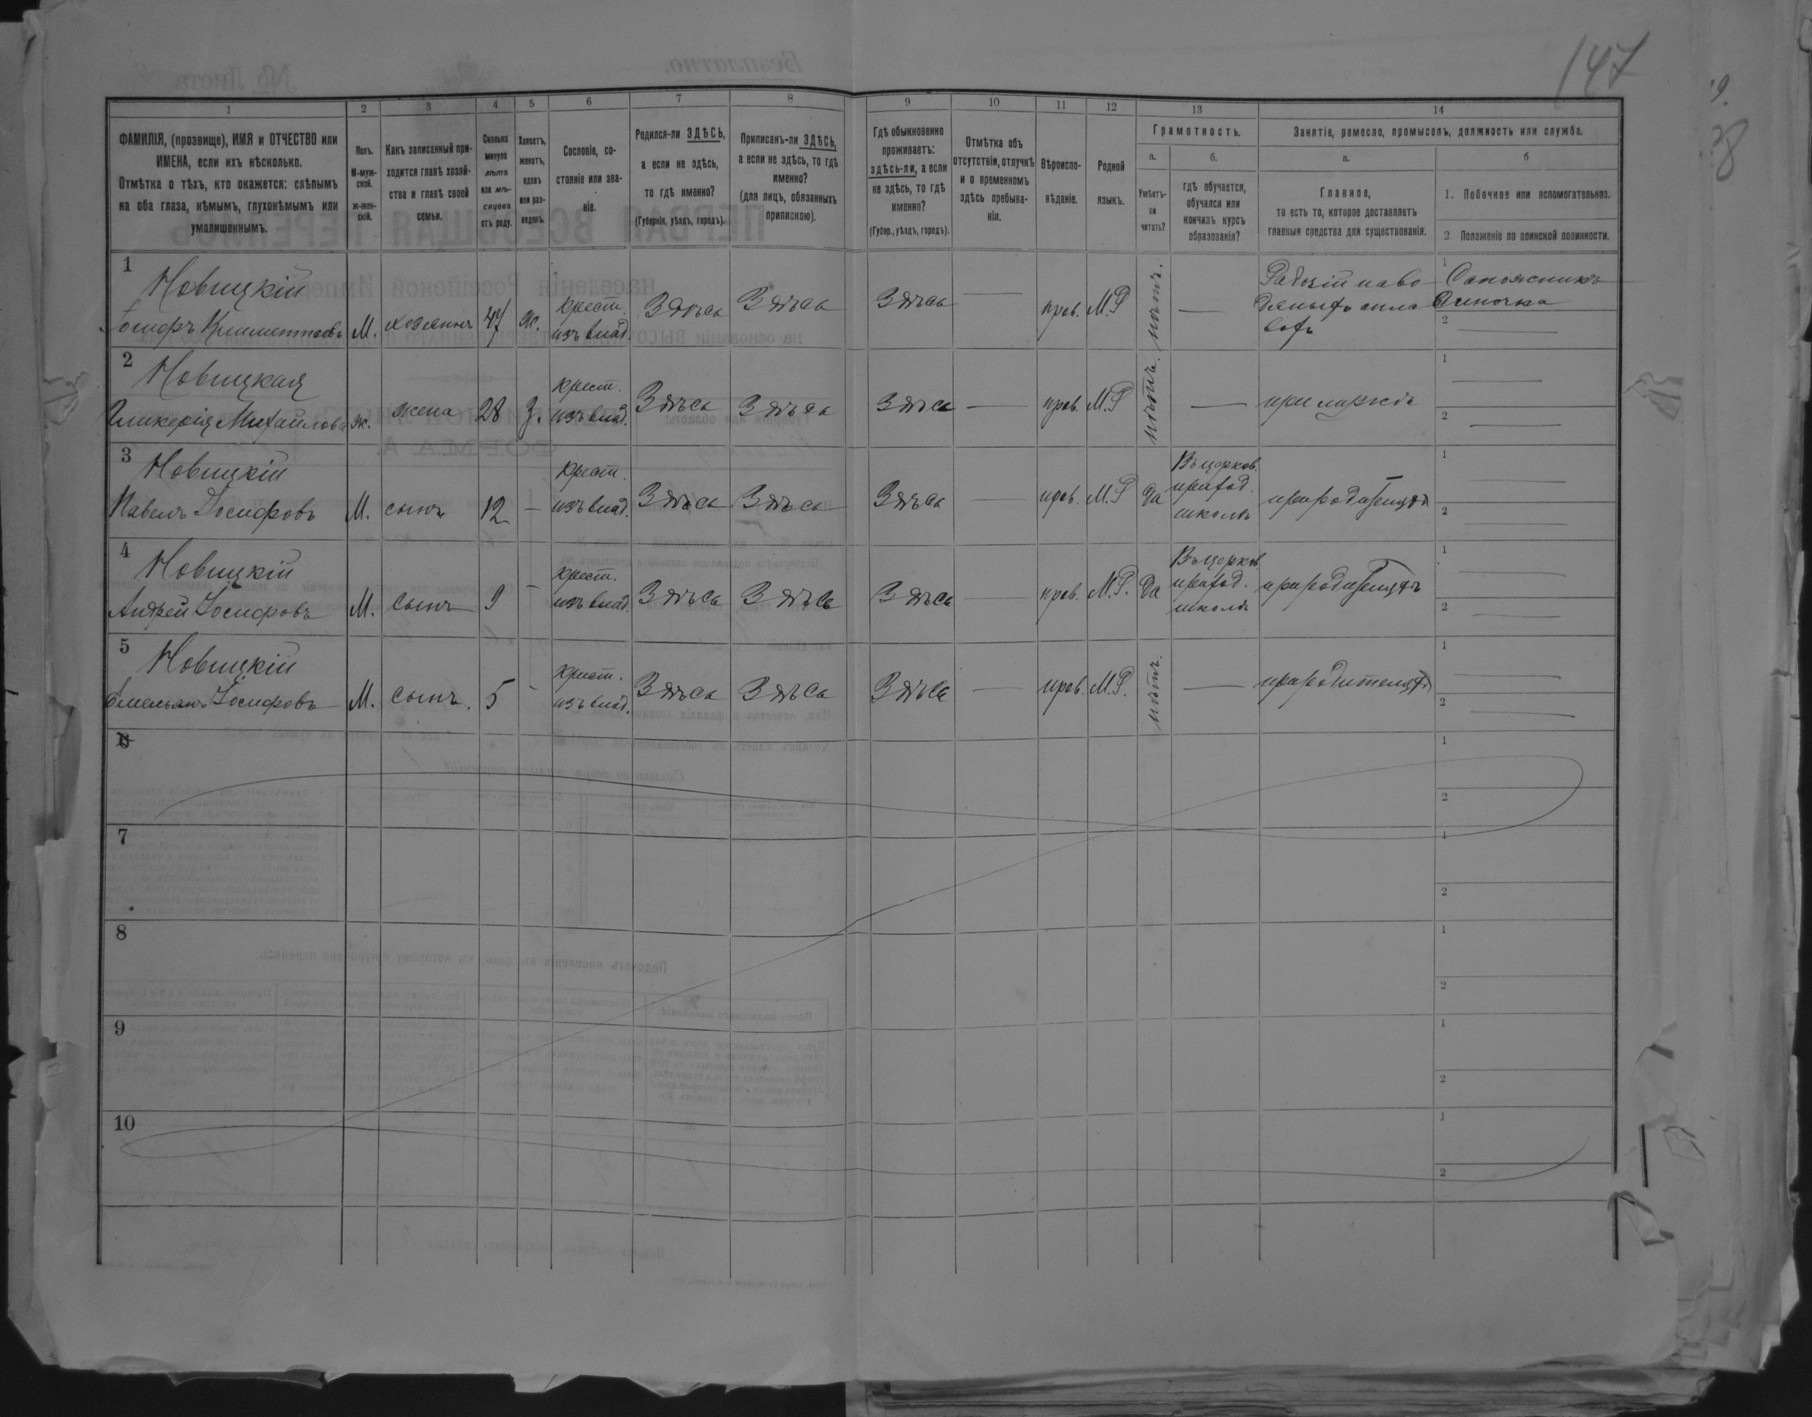 147
1 2 3 4 5 6 7 8 9 10 11 12 13 14
ФАМИЛІЯ, (прозвище), ИМЯ и ОТЧЕСТВО или
ИМЕНА, если ихъ нѣсколько.
Отмѣтка о тѣхъ, кто окажется: слѣпымъ
на оба глаза, нѣмымъ, глухонѣмымъ или
умалишеннымъ.
Полъ.
М-муж-
ской.
ж-жен-
скій.
Какъ записанный при-
ходится главѣ хозяй-
ства и главѣ своей
семьи.
Сколько
минуло
лѣтъ
или мѣ-
сяцевъ
отъ роду.
Холостъ,
женатъ,
вдовъ
или раз-
веденъ.
Сословіе, со-
стояніе или зва-
ніе.
Родился-ли ЗДѢСЬ,
а если не здѣсь,
то гдѣ именно?
(Губернія, уѣздъ, городъ).
Приписанъ-ли ЗДѢСЬ,
а если не здѣсь, то гдѣ
именно?
(для лицъ, обязанныхъ
припискою).
Гдѣ обыкновенно
проживаетъ:
здѣсь-ли, а если
не здѣсь, то гдѣ
именно?
(Губер., уѣздъ, городъ).
Отмѣтка объ
отсутствіи, отлучкѣ
и о временномъ
здѣсь пребыва-
ніи.
Вѣроиспо-
вѣданіе.
Родной
языкъ.
Грамотность.
а.
Умѣетъ-
ли
читать?
б.
Гдѣ обучается,
обучался или
кончилъ курсъ
образованія?
Занятіе, ремесло, промыселъ, должность или служба.
а.
Главное,
то есть то, которое доставляетъ
главныя средства для существованія.
б
1. Побочное или вспомогательное.
2. Положеніе по воинской повинности.
1
Новицкій
Іосифъ Климентіевъ
М.
хозяинъ
47
ж.
крест.
изъ влад.
Здѣсь
Здѣсь
Здѣсь
прав.
М.Р
нѣтъ.
Рабочій на во
дяныхъ спла
вахъ
1
Сапожникъ
одиночка
2
2
Новицкая
Гликерія Михайлова
ж.
жена
28
З.
крест.
изъ влад.
Здѣсь
Здѣсь
Здѣсь
прав.
М.Р
нѣтъ.
при мужѣ
1
2
3
Новицкій
Павелъ Іосифовъ
М.
сынъ
12
крест.
изъ влад.
Здѣсь
Здѣсь
Здѣсь
прав.
М.Р
да
Въ церков.
приход.
школѣ
при родителяхъ
1
2
4
Новицкій
Андрей Іосифовъ
М.
сынъ
9
крест.
изъ влад.
Здѣсь
Здѣсь
Здѣсь
прав.
М.Р.
Да
Въ церков
приход.
школѣ
при родителяхъ
1
2
5
Новицкій
Емельянъ Іосифовъ
М.
сынъ.
5
крест.
изъ влад.
Здѣсь
Здѣсь
Здѣсь
прав.
М.Р.
нѣтъ.
при родителяхъ
1
2
6
1
2
7
1
2
8
1
2
9
1
2
10
1
2